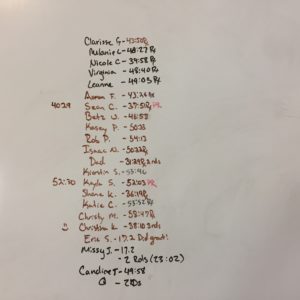 Clarisse G - 43:50 Rx
Melanie L - 40:27 Rx
Nicole C - 39:58 Rx
Virginia - 48:40 Rx
Leanne - 49:03 Rx
Aaron F. - 43:24 Rx
40:29 Sean C. - 37:51 Rx PR
Betz W. - 46:58
Kasey P. - 50:28
Rob P. - 54:13
Isaac N. - 50:22 Rx
Dad - 31:24 2 rds
Kierstin S. - 55:46
52:30 Kayla S. - 52:03 PR
Shane K. - 36:49 Rx
Katie C. - 53:32 Rx
Christy M. - 58:47 Rx
Christina K. - 38:10 3rds
Eric S. - 17.2 Did great!
Missy J. - 17.2
- 2 Rds (23:02)
Candice T - 49:58
- 2 RDs